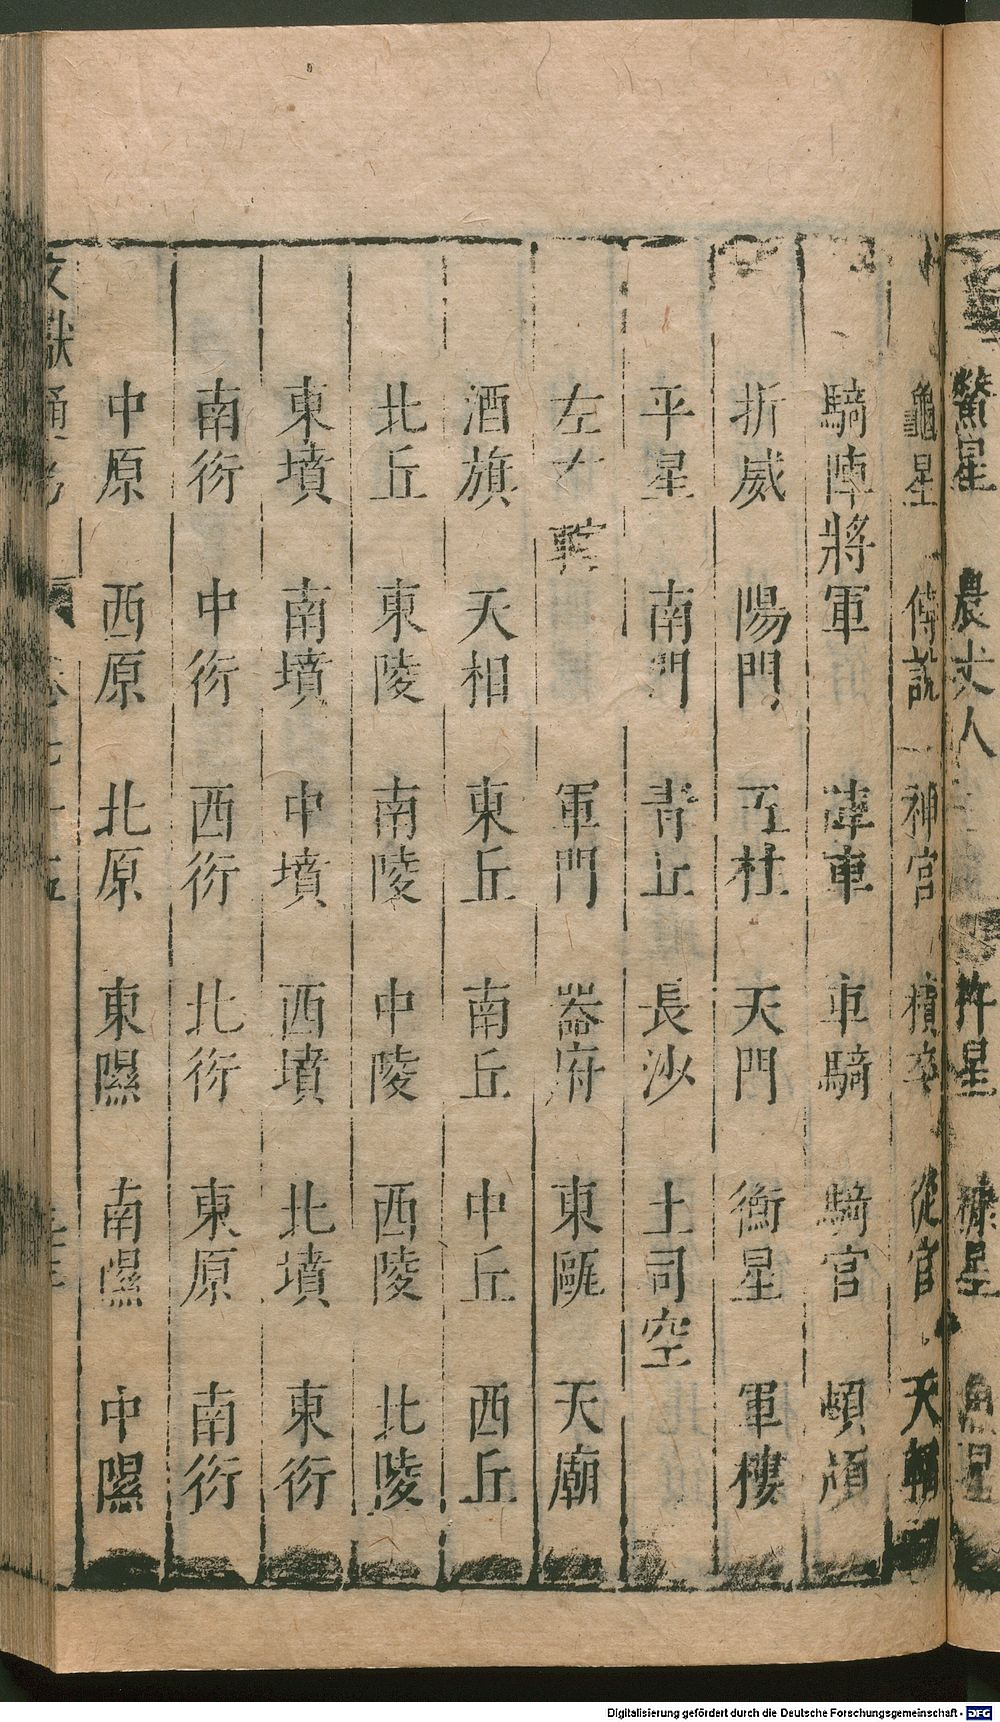 鱉星 農丈人 杵星 糠星 魚星
龜星 傅說 神宮 積卒 從官 天輻
騎陣將軍 車騎 騎官 頓頑
折威 陽門 天門 衡星 軍樓
平星 南門 青丘 長沙 土司空
左右 軍門 器府 東甌 天廟
酒旗 天相 東丘 南丘 中丘 西丘
北丘 東陵 南陵 中陵 西陵 北陵
東墳 南墳 中墳 西墳 北墳 東衍
南衍 中衍 西衍 北衍 東原 南衍
中原 西原 北原 東隰 南隰 中隰
文獻通考
Digitalisierung gefördert durch die Deutsche Forschungsgemeinschaft - DFG